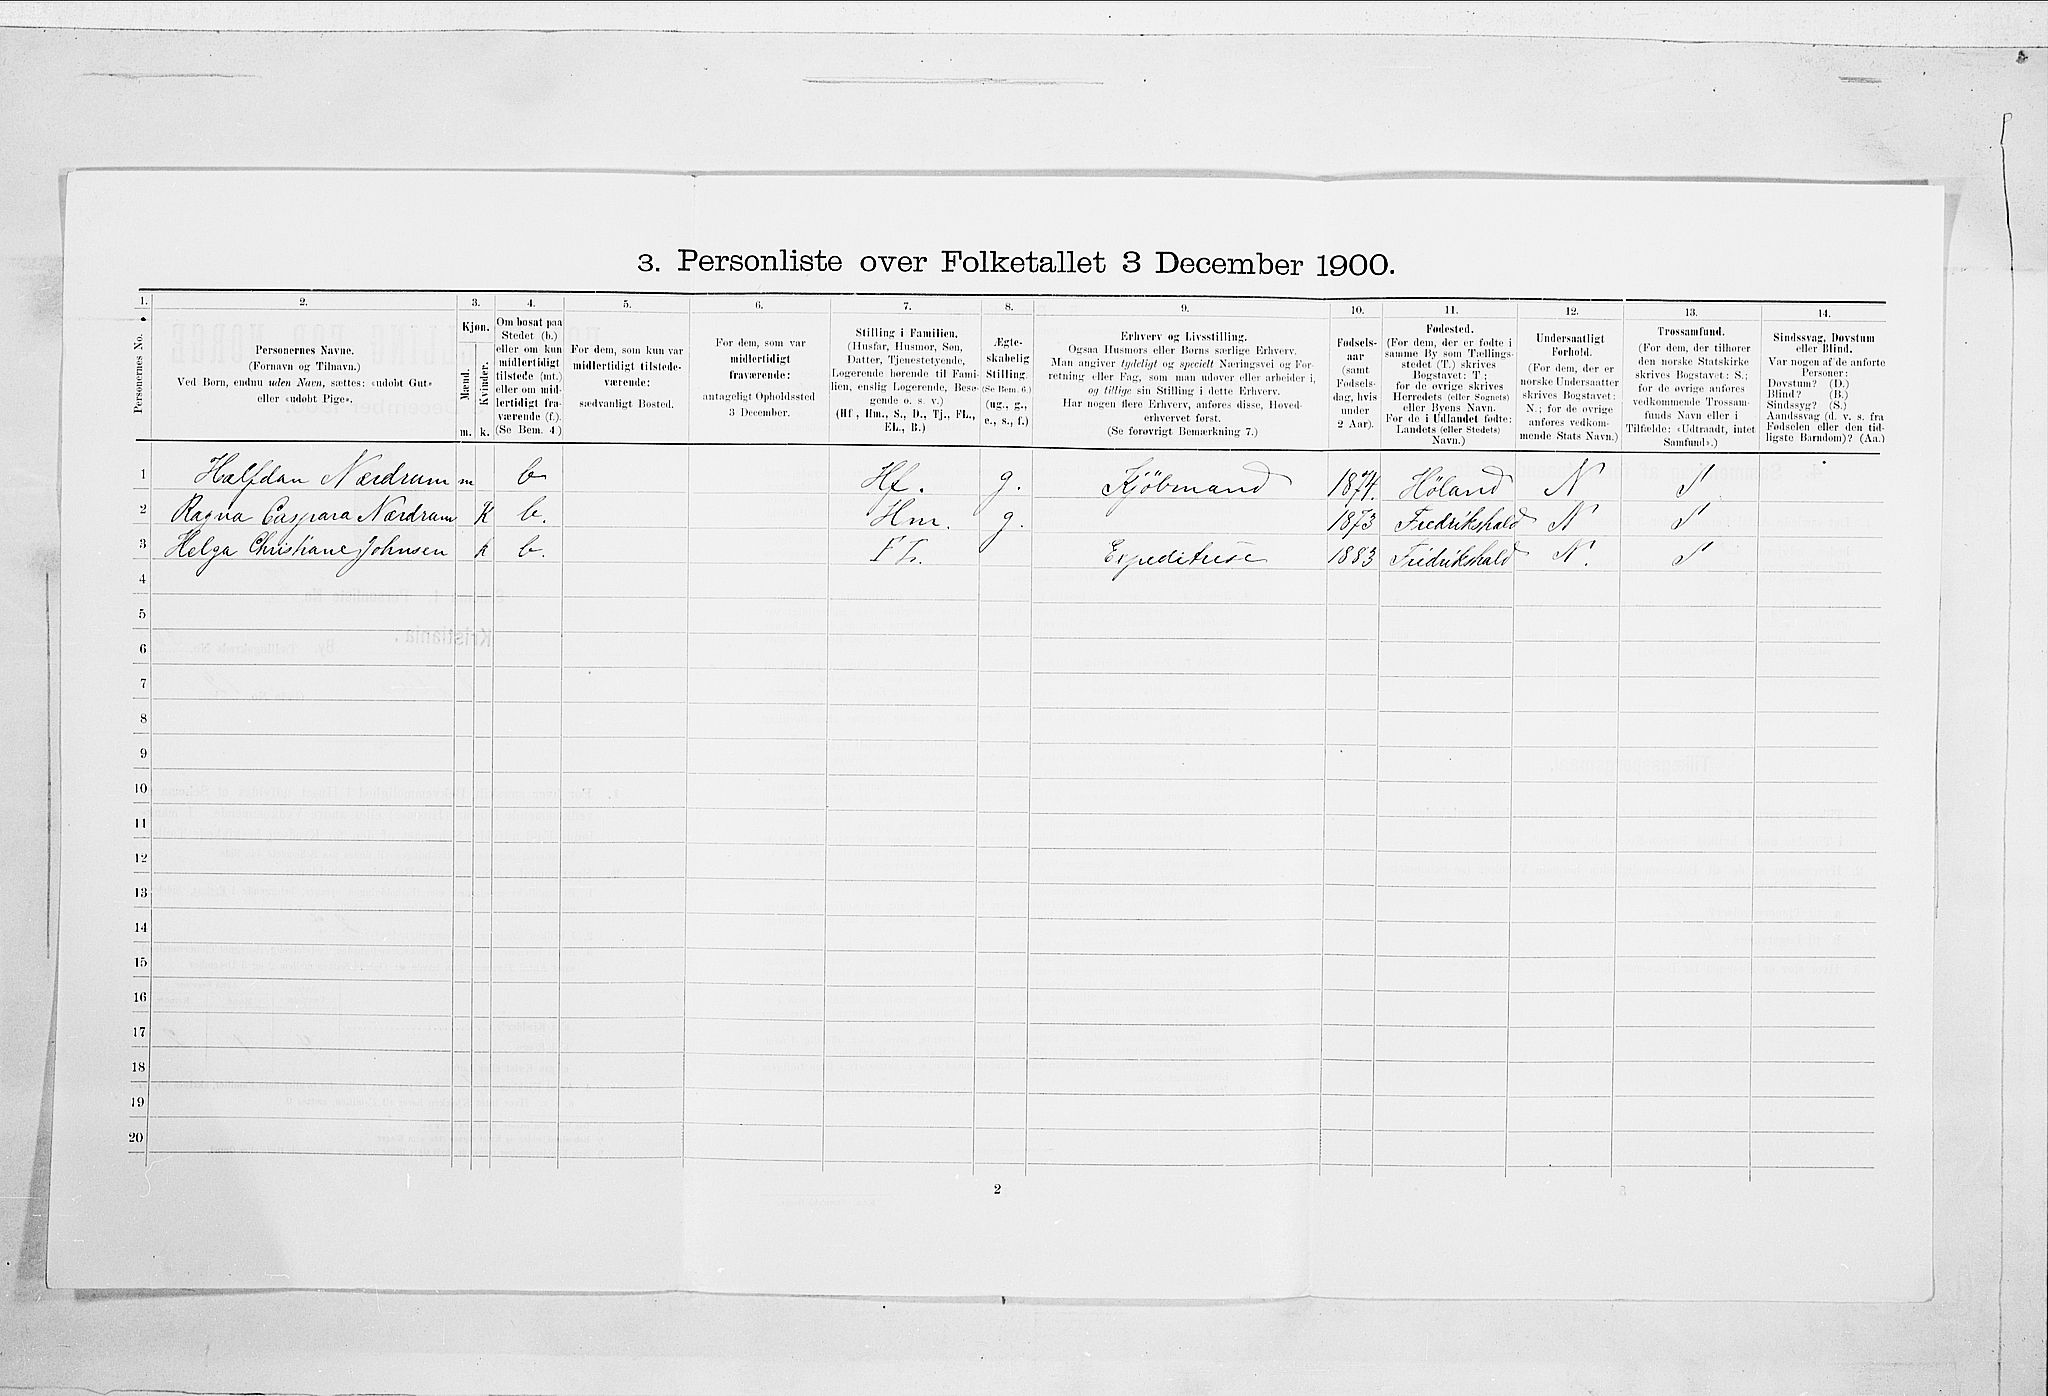 3. Personliste over Folketallet 3 December 1900.
1. 2. 3. 4. 5. 6. 7. 8. 9. 10. 11. 12. 13. 14.
Personernes No.
Personernes Navne.
(Fornavn og Tilnavn.)
Ved Børn, endnu uden Navn, sættes: «udøbt Gut»
eller «udøbt Pige».
Kjøn.
Mænd.
Kvinder.
m. k.
Om bosat paa
Stedet (b.)
eller om kun
midlertidigt
tilstede (mt.)
eller om mid-
lertidigt fra-
værende (f.).
(Se Bem. 4.)
For dem, som kun var
midlertidigt tilstede-
værende:
sædvanligt Bosted.
For dem, som var
midlertidigt
fraværende:
antageligt Opholdssted
3 December.
Stilling i Familien.
(Husfar, Husmor, Søn,
Datter, Tjenestetyende,
Logerende hørende til Fami-
lien, enslig Logerende, Besø-
gende o. s. v.)
(Hf., Hm., S., D., Tj., FL.,
EL., B.)
Ægte-
skabelig
Stilling.
(Se Bem. 6.)
(ug., g.,
e., s., f.)
Erhverv og Livsstilling.
Ogsaa Husmors eller Børns særlige Erhverv.
Man angiver tydeligt og specielt Næringsvei og For-
retning eller Fag, som man udøver eller arbeider i,
og tillige sin Stilling i dette Erhverv.
Har nogen flere Erhverv, anføres disse, Hoved-
erhvervet først.
(Se forøvrigt Bemærkning 7.)
Fødsels-
aar
(samt
Fødsels-
dag, hvis
under
2 Aar).
Fødested.
(For dem, der er fødte i
samme By som Tællings-
stedet (T.) skrives
Bogstavet: T.;
for de øvrige skrives
Herredets (eller Sognets)
eller Byens Navn.
For de i Udlandet fødte:
Landets (eller Stedets)
Navn.)
Undersaatligt
Forhold.
(For dem, der er
norske Undersaatter
skrives Bogstavet:
N.; for de øvrige
anføres vedkom-
mende Stats Navn.)
Trossamfund.
(For dem, der tilhører
den norske Statskirke
skrives Bogstavet: S.;
for de øvrige anføres
vedkommende Trossam-
funds Navn eller i
Tilfælde: «Udtraadt, intet
Samfund».)
Sindssvag, Døvstum
eller Blind.
Var nogen af de anførte
Personer:
Døvstum? (D.)
Blind? (B.)
Sindssyg? (S.)
Aandssvag (d. v. s. fra
Fødselen eller den tid-
ligste Barndom)? (Aa.)
1 Halfdan Nærdrum m b Hf. g. Kjöbmand 1874. Höland N S
2 Ragna Caspara Nærdrum K b. Hm. g. 1873 Fredrikshald N S
3 Helga Christiane Johnsen k b. FL. Expeditrise 1883 Fredrikshald N. S
4
5
6
7
8
9
10
11
12
13
14
15
16
17
18
19
20
2